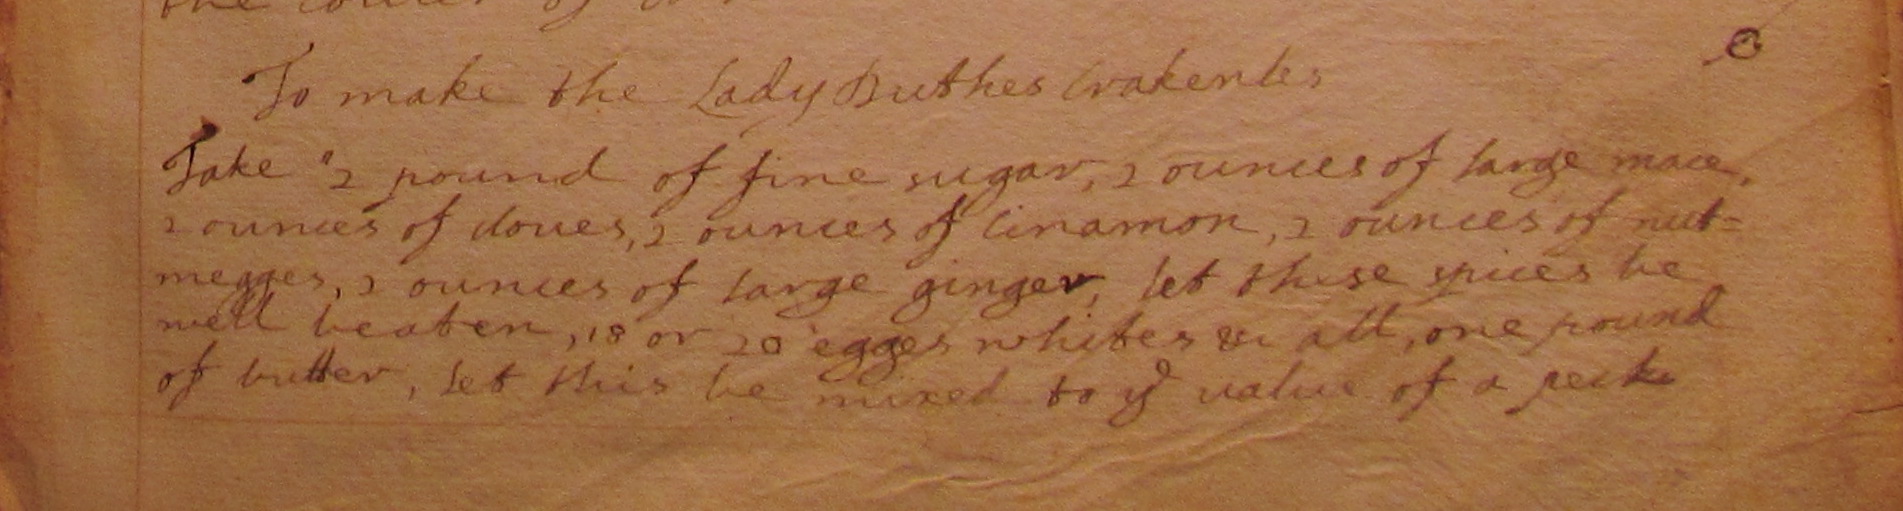 the
To make the Lady Buthes Crakenles
Take 2 pound of fine sugar, 2 ounces of large mace,
2 ounces of cloues, 2 ounces of Cinamon, 2 ounces of nut-
megges, 2 ounces of large ginger, let these spices be
well beaten, 18 or 20 egges whites & all, one pound
of butter, let this be mixed to ye value of a peck